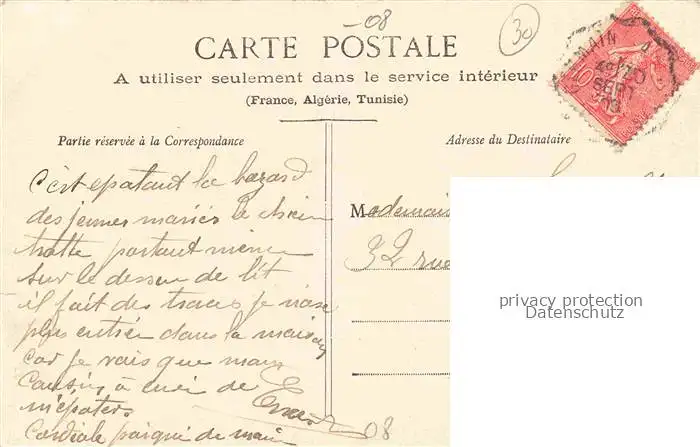 -08
30
CARTE POSTALE
A utiliser seulement dans le service intérieur
(France, Algérie, Tunisie)
Partie réservée à la Correspondance
Adresse du Destinataire
c'est epatant le bazard
des jeunes mariés le chien
trotte partout même
sur le dessus de lit
il fait des traces je n'ose
plus entrer dans la maison
car je vais que mon
Cousin, à de
Cordiale poigné de main
08
Mademois
32 rue
privacy protection
Datenschutz